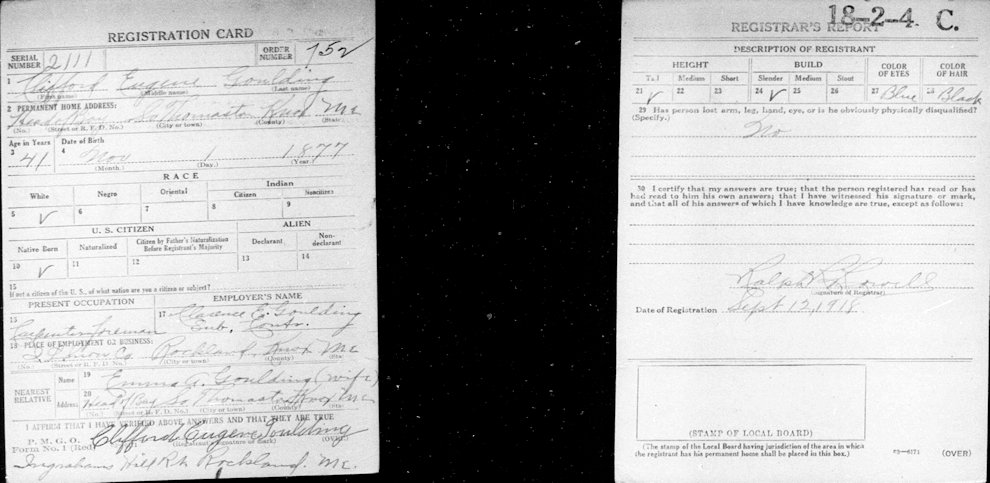 REGISTRATION CARD
SERIAL NUMBER 2111
ORDER NUMBER 752
1 Clifford Eugene Goulding
(First name) (Middle name) (Last name)
2 PERMANENT HOME ADDRESS:
Head of Bay So Thomaston Knox Me
(No.) (Street or R. F. D. No.) (City or town) (County) (State)
Age in Years Date of Birth
3 41 4 Nov 1 1877
(Month.) (Day.) (Year.)
RACE
White Negro Oriental Indian
Citizen Noncitizen
5 ✓ 6 7 8 9
U. S. CITIZEN ALIEN
Native Born Naturalized Citizen by Father's Naturalization Before Registrant's Majority Declarant Non-declarant
10 ✓ 11 12 13 14
15
If not a citizen of the U. S., of what nation are you a citizen or subject?
PRESENT OCCUPATION EMPLOYER'S NAME
16 Carpenter Foreman 17 Clarence E. Goulding
Sub. Contr.
18 PLACE OF EMPLOYMENT OR BUSINESS:
Co. Rockland, Knox Me
(No.) (Street or R. F. D. No.) (City or town) (County) (State)
NEAREST RELATIVE
Name 19 Emma A. Goulding (wife)
Address 20 Head of Bay So Thomaston Knox Me
(No.) (Street or R. F. D. No.) (City or town) (County) (State)
I AFFIRM THAT I HAVE VERIFIED ABOVE ANSWERS AND THAT THEY ARE TRUE
P. M. G. O.
Form No. 1 (Red) Clifford Eugene Goulding
(Registrant's signature or mark) (OVER)
Ingrahams Hill Rd Rockland. Me.
18-2-4. C.
REGISTRAR'S REPORT
DESCRIPTION OF REGISTRANT
HEIGHT BUILD COLOR OF EYES COLOR OF HAIR
Tall Medium Short Slender Medium Stout
21 ✓ 22 23 24 ✓ 25 26 27 Blue 28 Black
29 Has person lost arm, leg, hand, eye, or is he obviously physically disqualified?
(Specify.) No
30 I certify that my answers are true; that the person registered has read or has
had read to him his own answers; that I have witnessed his signature or mark,
and that all of his answers of which I have knowledge are true, except as follows:
Ralph
(Signature of Registrar)
Date of Registration Sept 12, 1918
(STAMP OF LOCAL BOARD)
(The stamp of the Local Board having jurisdiction of the area in which
the registrant has his permanent home shall be placed in this box.)
03-6171 (OVER)